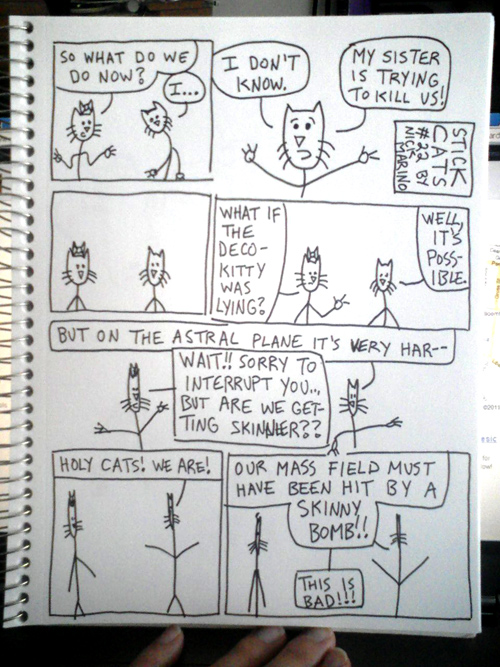 SO WHAT DO WE
DO NOW?
I...
I DON'T
KNOW.
MY SISTER
IS TRYING
TO KILL US!
STICK
CATS
#22 BY
NICK MARINO
WHAT IF
THE
DECO-
KITTY
WAS
LYING?
WELL,
IT'S
POSS-
IBLE.
BUT ON THE ASTRAL PLANE IT'S VERY HAR--
WAIT!! SORRY TO
INTERRUPT YOU...
BUT ARE WE GET-
TING SKINNIER??
HOLY CATS! WE ARE!
OUR MASS FIELD MUST
HAVE BEEN HIT BY A
SKINNY
BOMB!!
THIS IS
BAD!!!